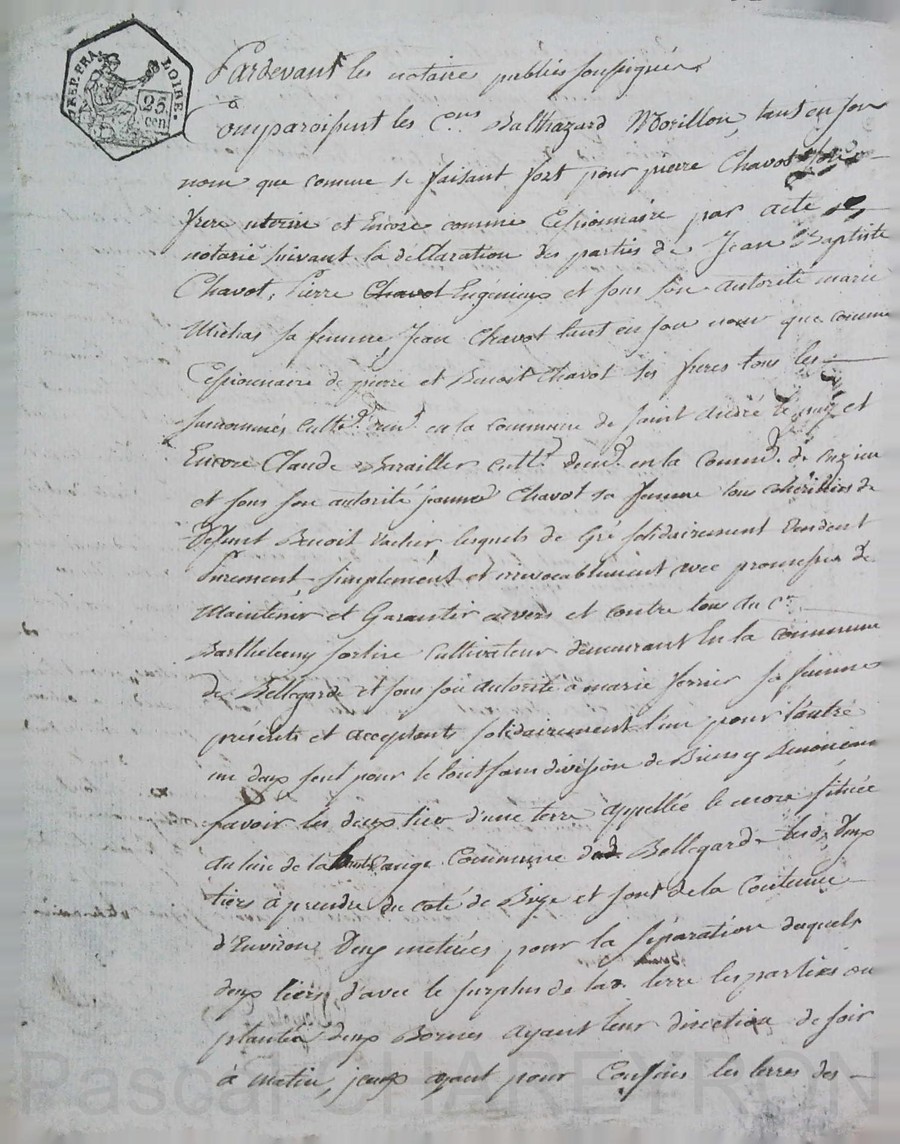 REP. FRA. LOIRE.
25 cen
Pardevant les notaire publics soussignés
Comparoissent les C.ens Balthazard Morillon, tant en son
nom que comme se faisant fort pour pierre Chavot
frere uterin et Encore comme Cessionnaire par acte
notarié suivant la déclaration des parties de Jean Baptiste
Chavot, Pierre Chavot Engénieux et sous son autorité marie
Michas sa femme, Jean Chavot tant en son nom que comme
Cessionnaire de pierre et Benoit Chavot ses freres tous les
susnommés Cultt.rs en la commune de saint andré le puy et
Encore Claude Barailler Cultt.r dem.t en la Comm.e de Cuzieu
et sous son autorité jeanne Chavot sa femme tous cohéritiers de
Défunt Benoit lesquels de Gré solidairement Vendent
Purement simplement et irrévocablement avec promesses de
Maintenir et Garantir envers et contre tous au C.en
Barthelemy Cultivateur demeurant En la commune
de Bellegarde et sous son autorité a marie ferrier sa femme
présents et acceptants solidairement l'un pour l'autre
un deux seul pour le tout sans division de Biens
savoir les deux tiers d'une terre appellée le more située
au lieu de la Commune de Bellegarde lesd. Deux
tiers à prendre du coté de Bize et sont de la Contenue
d'Environ Deux métérées pour la séparation desquels
deux tiers d'avec le surplus de lad. terre les parties ont
planté deux Bornes ayant leur direction de soir
à matin, iceux ayant pour Confins les terres des
Pascal CHAREYRON